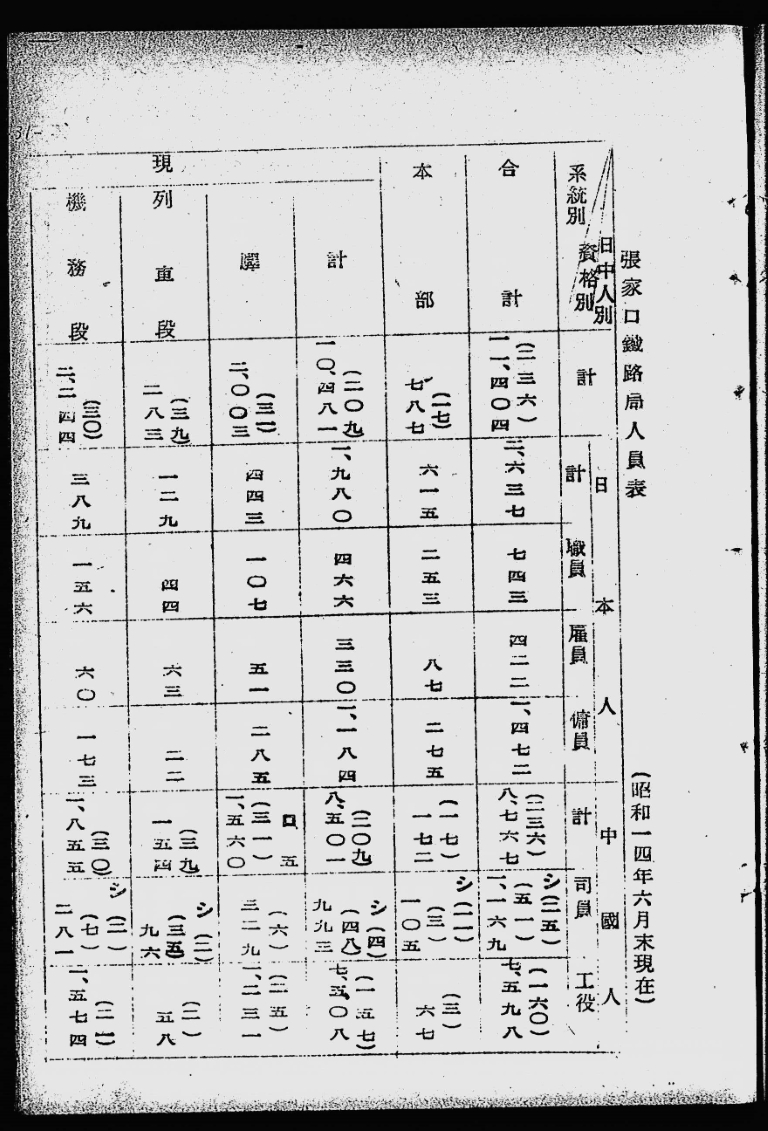 張家口鐵路局人員表
(昭和一四年六月末現在)
日中人別
資格別
系統別
計
日本人
計
職員
雇員
傭員
中國人
計
司員
工役
合計
(二三六)
一一、四〇四
二、六三七
七四三
四二二
一、四七二
(二三六)
八、七六七
シ(二五)
(五一)
一、一六九
(一六〇)
七、五九八
本部
(一七)
七八七
六一五
二五三
八七
二七五
(一七)
一七二
シ(一一)
(三)
一〇五
(三)
六七
現
計
(二〇九)
一〇、四八一
一、九八〇
四六六
三三〇
一、一八四
(二〇九)
八、五〇一
シ(四)
(四八)
九九三
(一五七)
七、五〇八
驛
(三一)
二、〇〇三
四四三
一〇七
五一
二八五
ロ 五
(三一)
一、五六〇
(六)
三二九
(二五)
一、二三一
列車段
(三九)
二八三
一二九
四四
六三
二二
(三九)
一五四
シ(二)
(三五)
九六
(二)
五八
機務段
(三〇)
二、二四四
三八九
一五六
六〇
一七三
(三〇)
一、八五五
シ(二)
(七)
二八一
(二一)
一、五七四